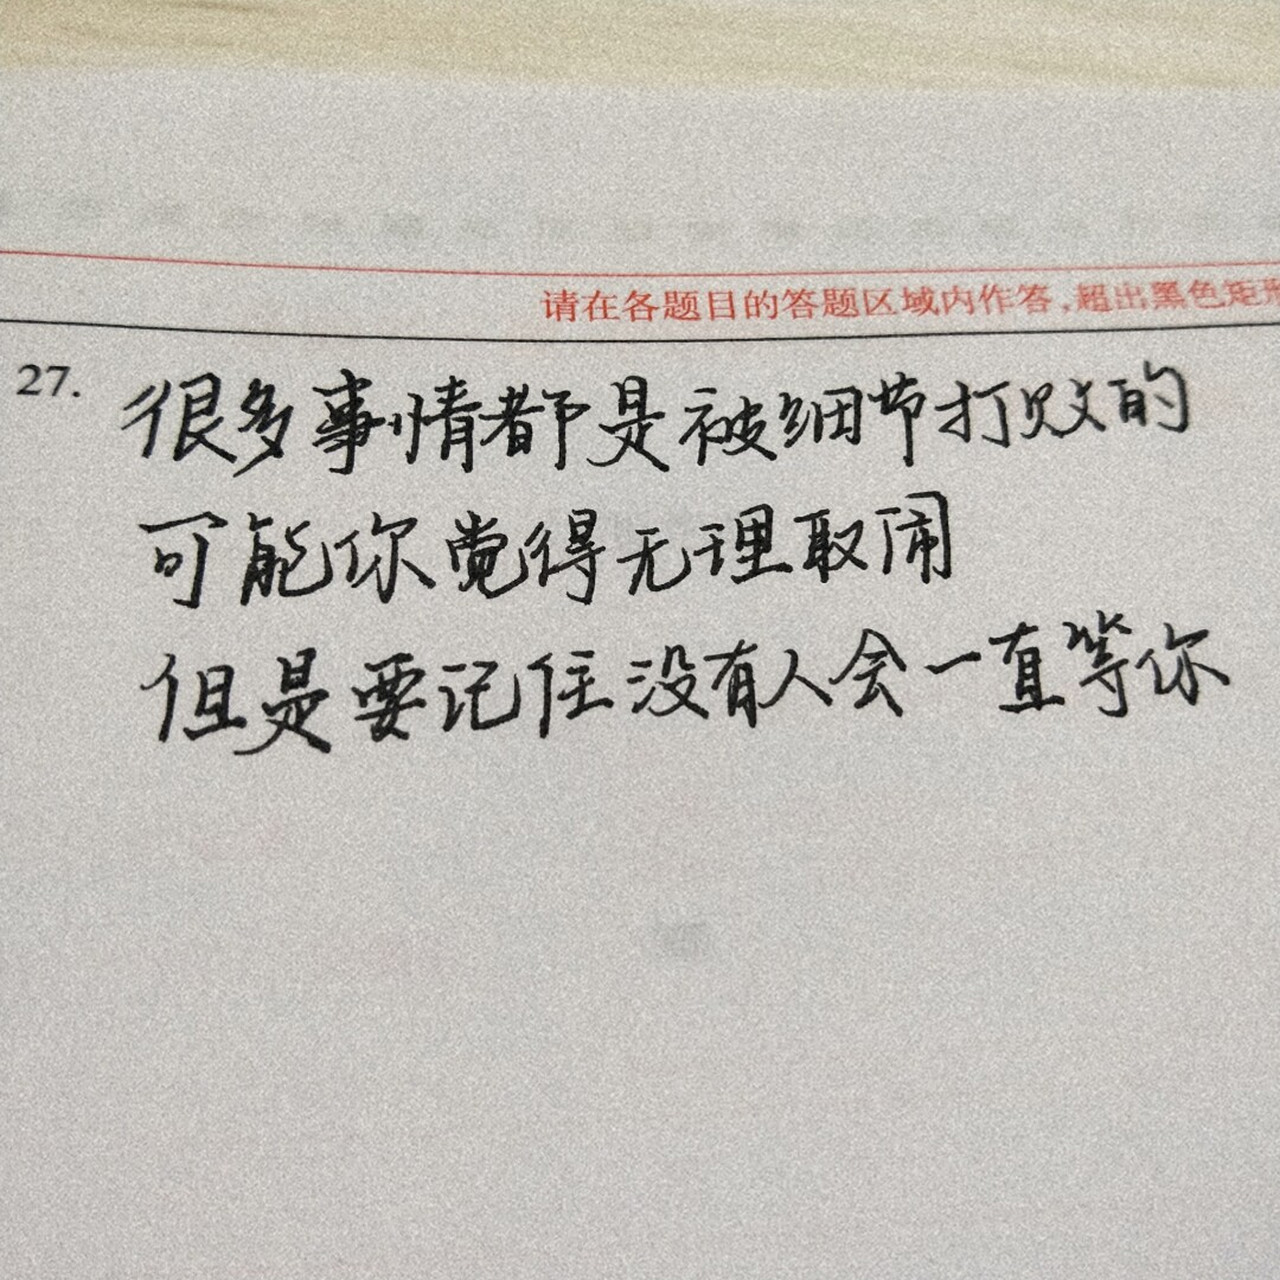 请在各题目的答题区域内作答,超出黑色矩形
27. 很多事情都是被细节打败的
可能你觉得无理取闹
但是要记住没有人会一直等你